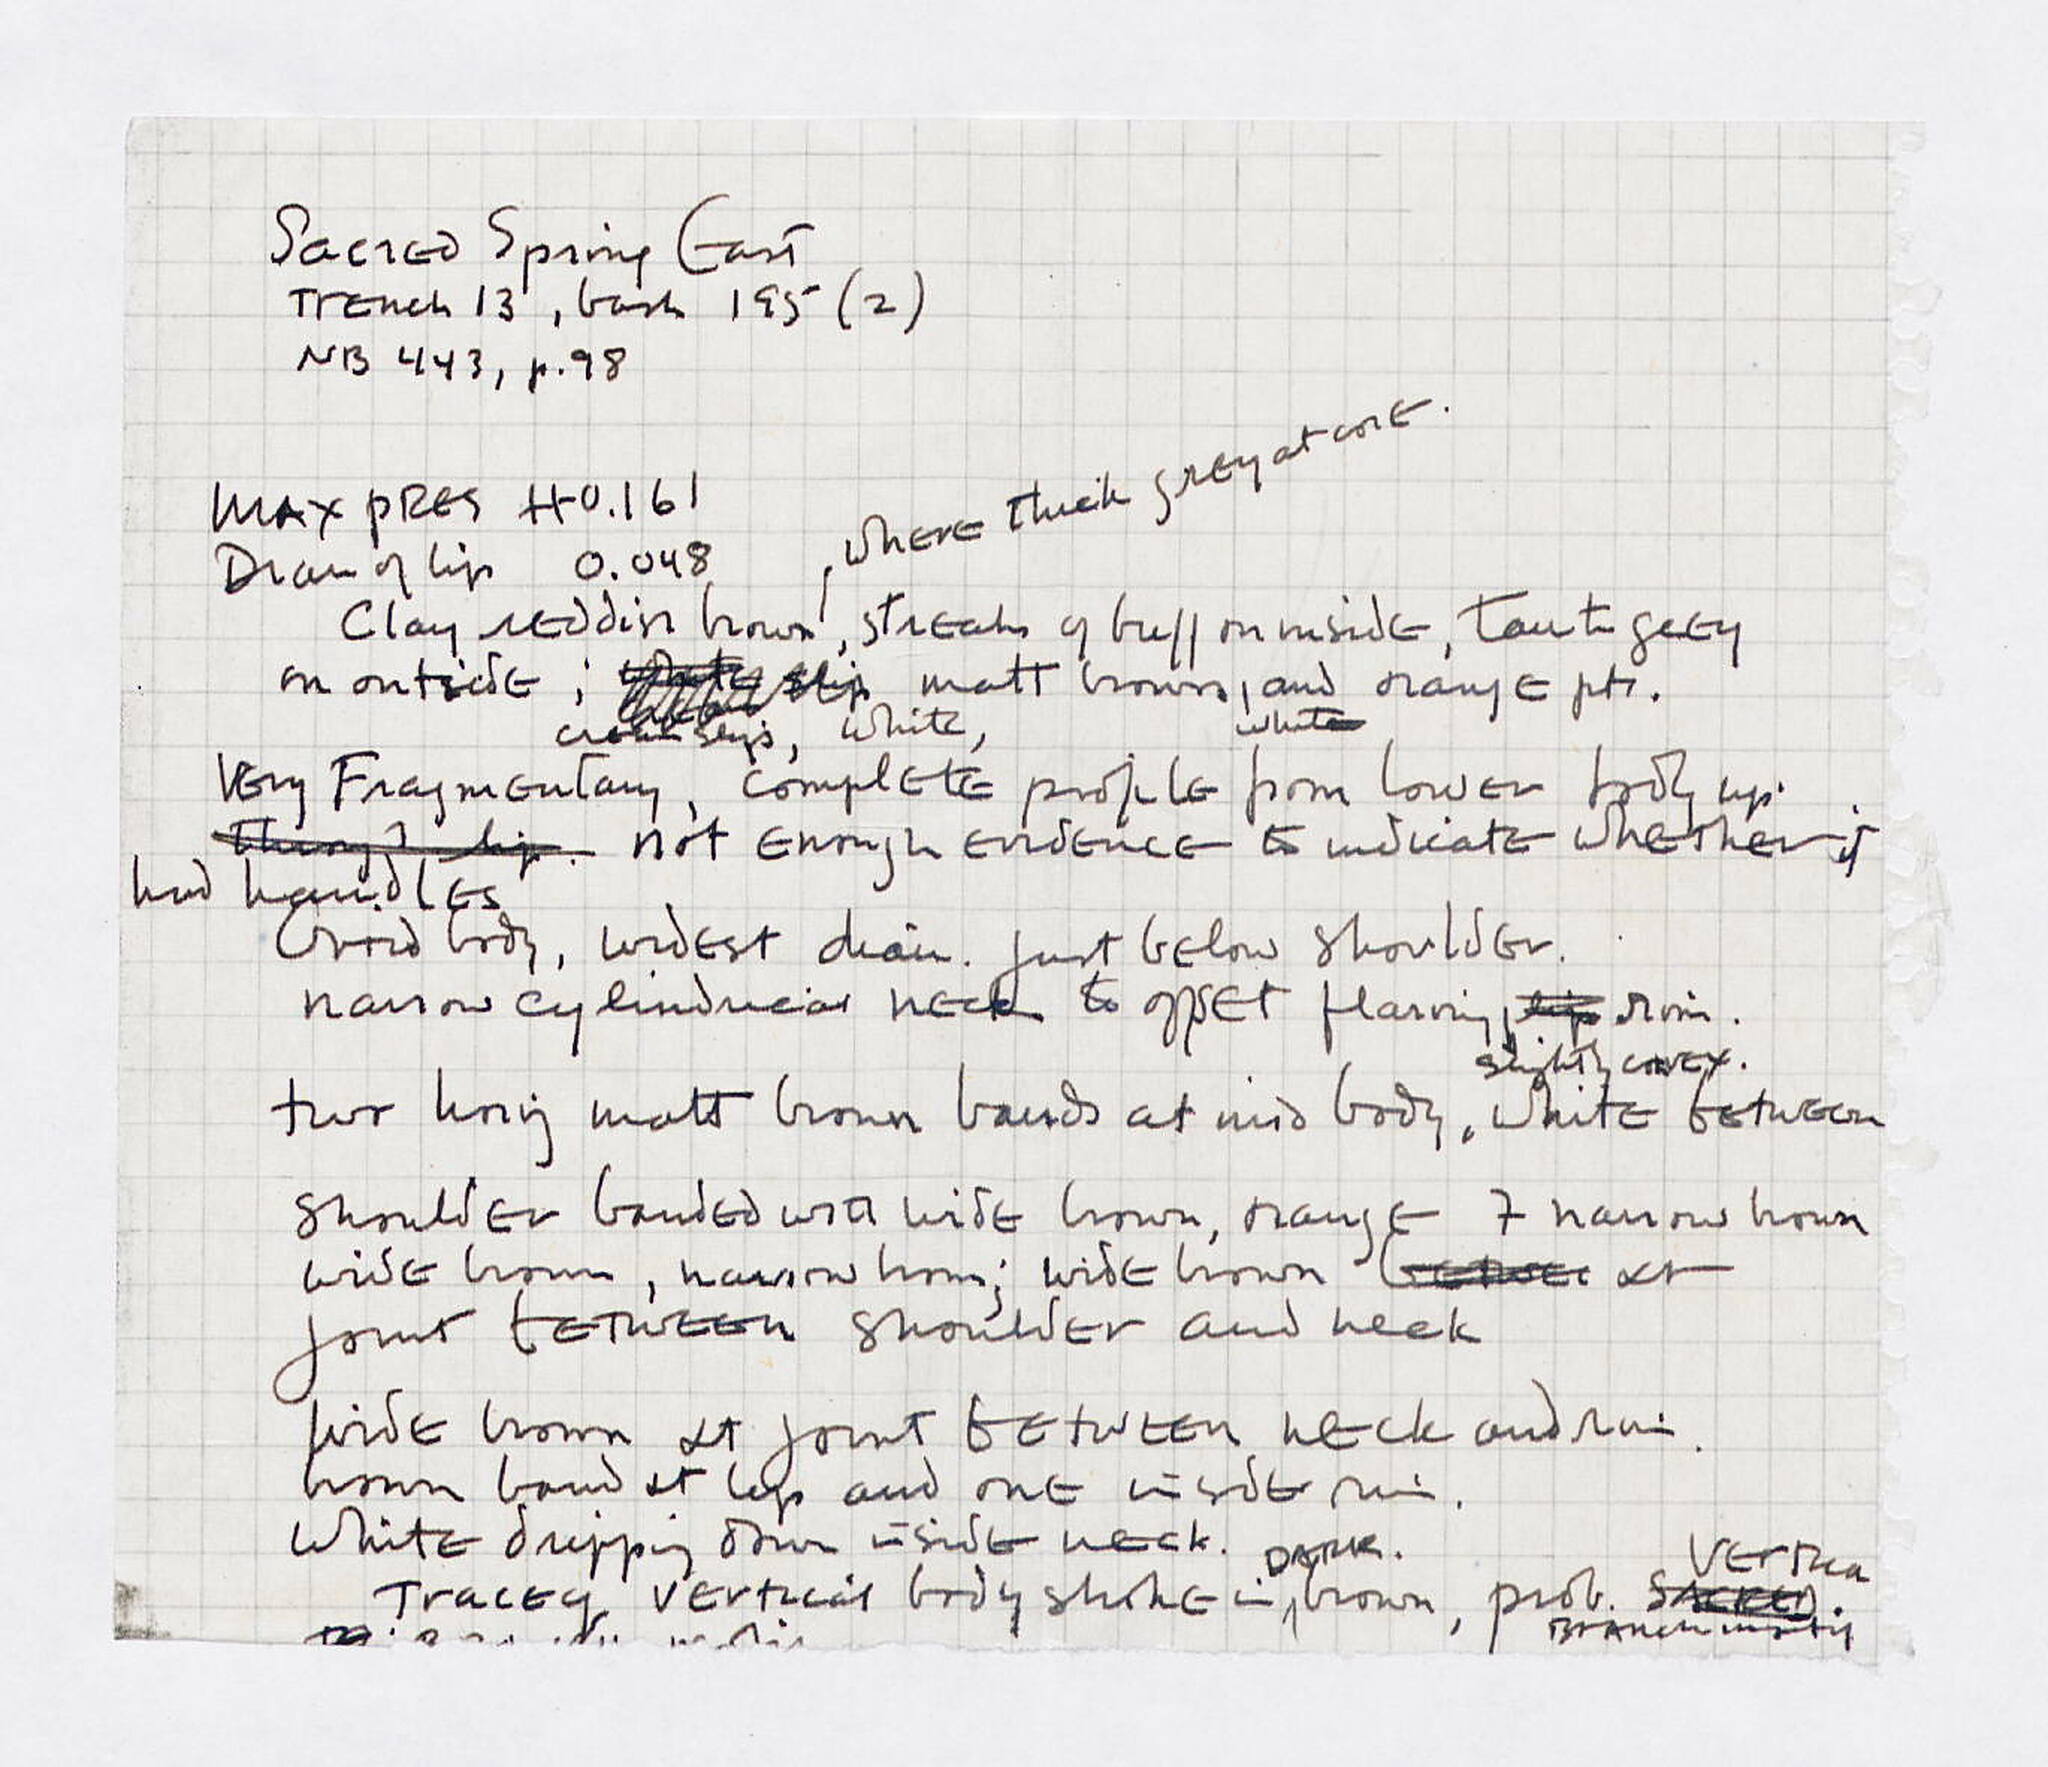 Sacred Spring East
Trench 13, bask 195 (2)
NB 443, p. 98
Max pres H 0.161
Diam of lip 0.048
, where thick grey at core.
Clay reddish brown, streaks of buff on inside, grey
on outside; matt brown, and orange ptr.
cream slip, white, white
Very Fragmentary, complete profile from lower body up.
through lip. Not enough evidence to indicate whether it
had handles
Ovoid body, widest diam. just below shoulder.
narrow cylindrical neck to offset flaring, lip rim.
slightly convex.
two horiz matt brown bands at mid body, white between
shoulder banded with wide brown, orange 7 narrow brown
wide brown, narrow brown; wide brown between at
joint between shoulder and neck
wide brown at joint between neck and rim.
brown band at lip and one inside rim.
White dripping down inside neck.
DARK. Vertical
Traces of vertical body stroke in brown, prob. sacred.
Branch motif